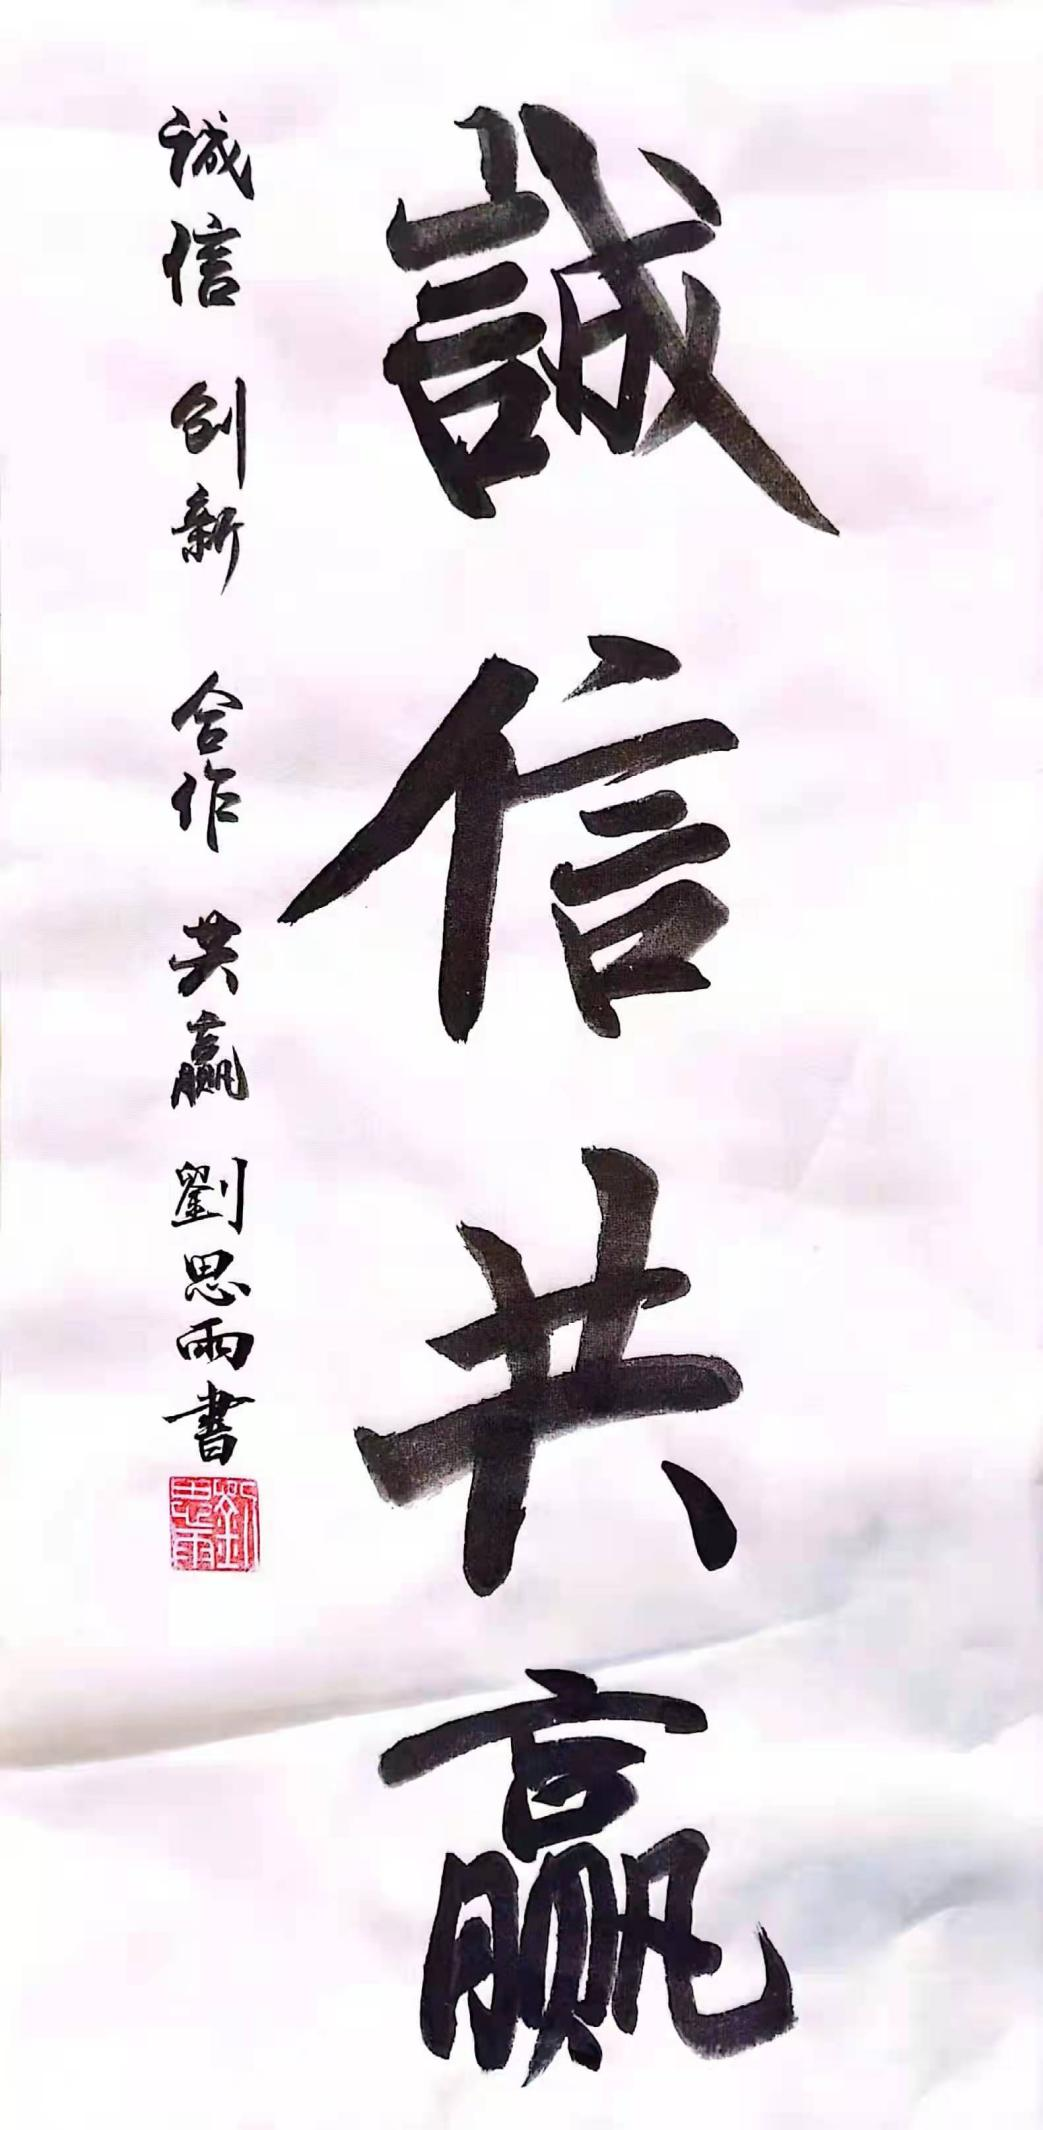 誠信共赢
诚信 创新 合作 共赢 劉思雨書
劉思雨